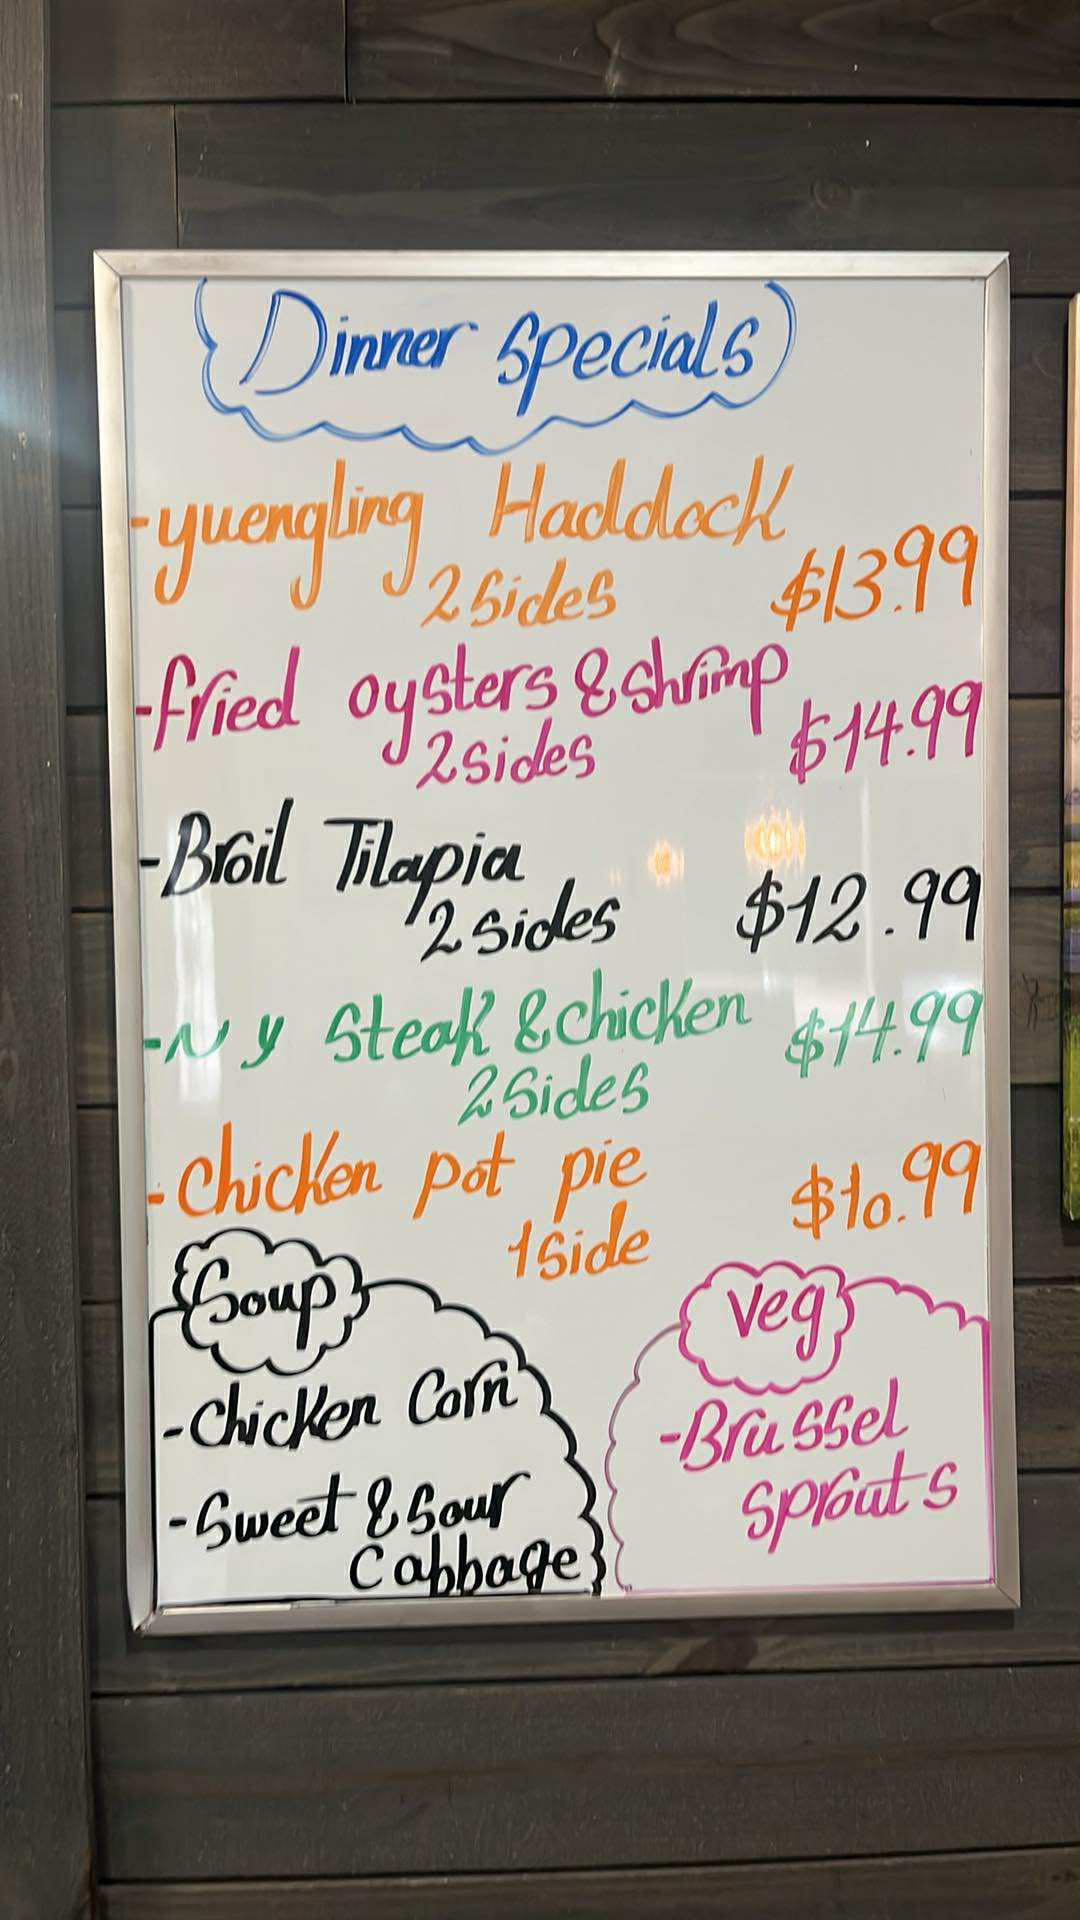 Dinner Specials
-yuengling Haddock
2 sides $13.99
-fried oysters & shrimp
2 sides $14.99
-Broil Tilapia
2 sides $12.99
-N y Steak & chicken $14.99
2 sides
-chicken pot pie $10.99
1 side
Soup
-chicken Corn
-Sweet & Sour
Cabbage
Veg
-Brussel
sprouts